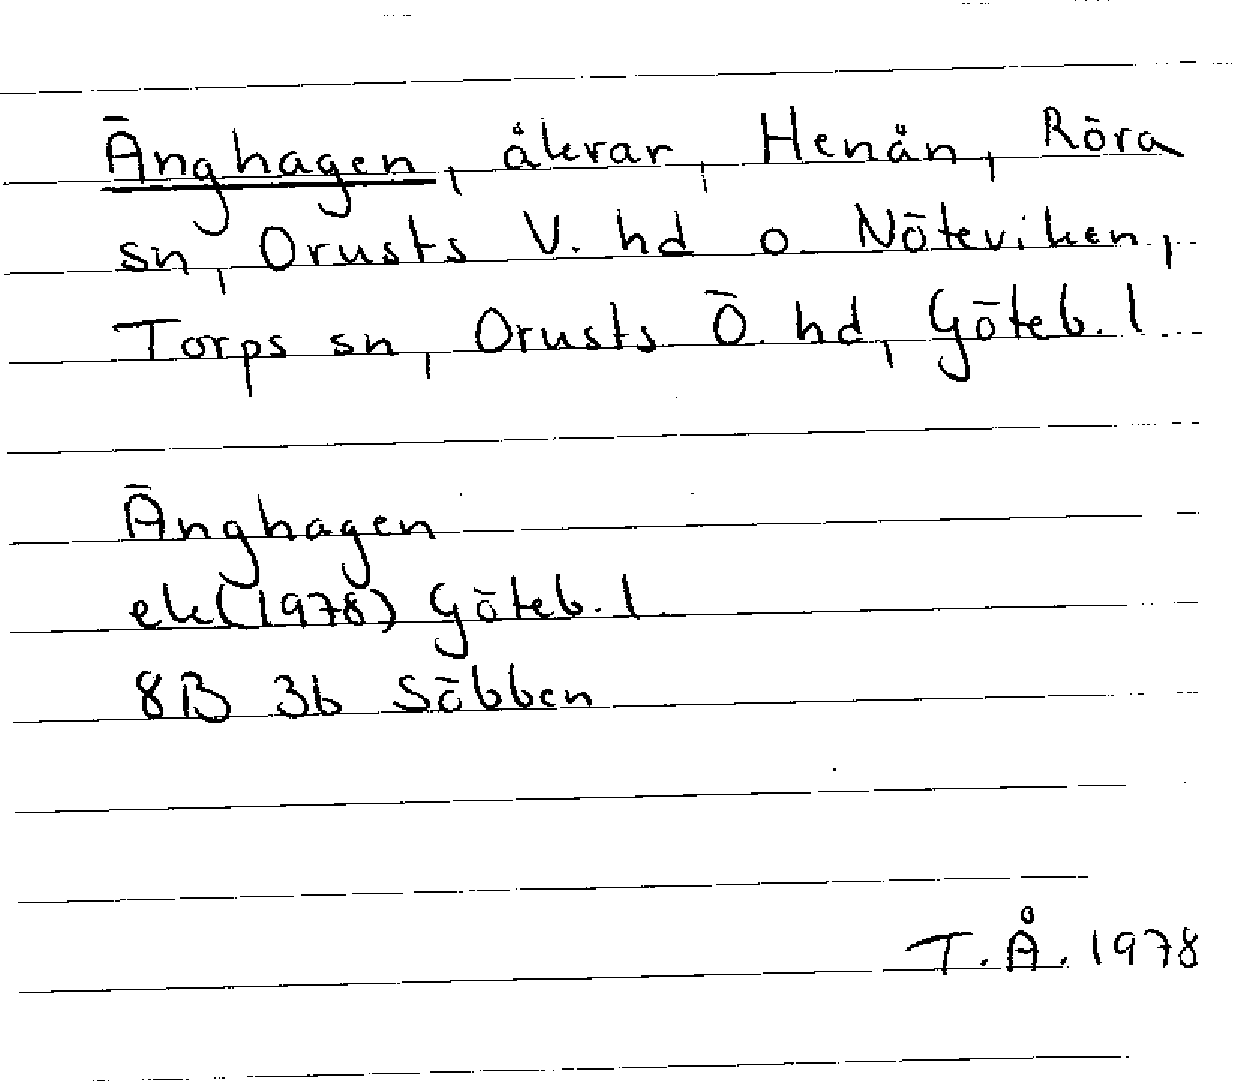 Änghagen, åkrar, Henån, Röra
sn, Orusts V. hd o. Nöteviken,
Torps sn, Orusts Ö. hd, Göteb. l.
Änghagen
ek(1978) Göteb. l.
8B 3b Söbben
T. Å. 1978